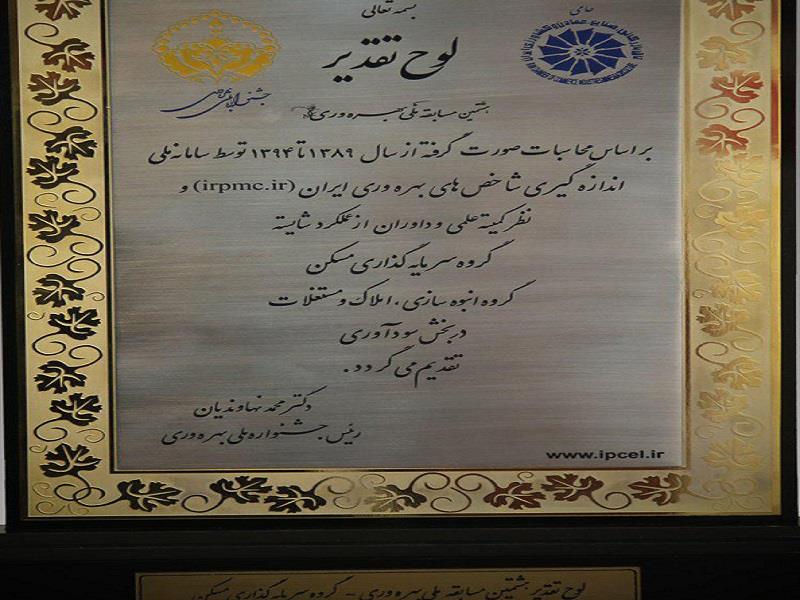 بسمه تعالی
لوح تقدیر
حامی
جشنواره ملی بهره وری
هشتمین مسابقه ملی بهره وری
بر اساس محاسبات صورت گرفته از سال ۱۳۸۹ تا ۱۳۹۴ توسط سامانه ملی
اندازه گیری شاخص های بهره وری ایران (irpmc.ir) و
نظر کمیته علمی و داوران از عملکرد شایسته
گروه سرمایه گذاری مسکن
گروه انبوه سازی، املاک و مستغلات
در بخش سودآوری
تقدیم می گردد.
دکتر محمد نهاوندیان
رئیس جشنواره ملی بهره وری
www.ipcel.ir
لوح تقدیر هشتمین مسابقه ملی بهره وری - گروه سرمایه گذاری مسکن